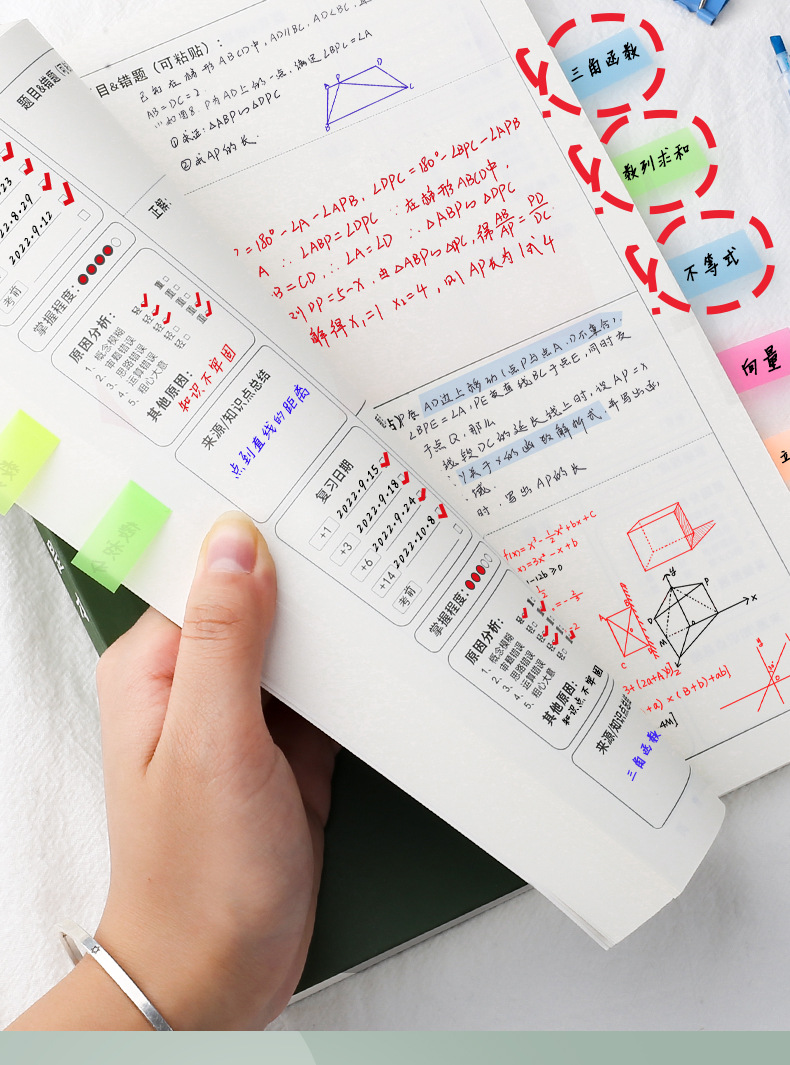 题目&错题
目&错题（可粘贴）：
已知在梯形ABCD中, AD//BC, AD<BC,
AB=DC=2
P为AD上的一点, 满足∠BPC=∠A
①求证: △ABP∽△DPC
②求AP的长.
正解:
=180°-∠A-∠APB, ∠DPC=180°-∠BPC-∠APB
∴∠ABP=∠DPC ∵在梯形ABCD中,
B=CD, ∴∠A=∠D ∴△ABP∽△DPC
PD=5-X, 由△ABP∽△DPC, 得AB/AP=PD/DC
解得X₁=1 X₂=4, 则AP长为1或4
AD边上移动(点P与点A、D不重合),
∠BPE=∠A, PE交直线BC于点E, 同时交
于点Q, 那么
线段DC的延长线上时, 设AP=X
y关于x的函数解析式, 并写出
时, 写出AP的长
三角函数
数列求和
不等式
向量
立
23
22.8.29
2022.9.12
考前
掌握程度:
原因分析:
1、概念模糊 轻 重
2、审题错误 轻 重
3、思路错误 轻 重
4、运算错误 轻 重
5、粗心大意 轻 重
其他原因:
知识不牢固
来源/知识点总结
点到直线的距离
复习日期
+1 2022.9.15
+3 2022.9.18
+6 2022.9.24
+14 2022.10.8
考前
掌握程度:
原因分析:
1、概念模糊
2、审题错误
3、思路错误
4、运算错误
5、粗心大意
其他原因:
知识点不牢固
来源/知识点总结
三角函数